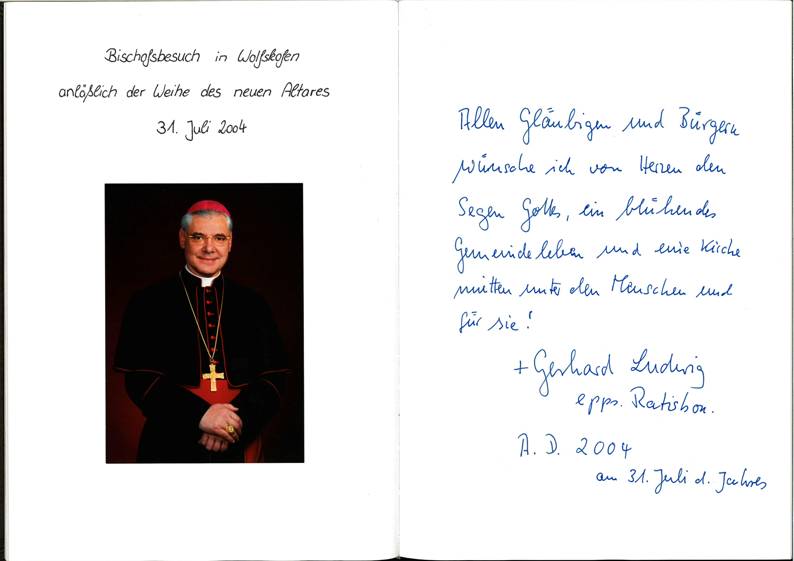 Bischofsbesuch in Wolfskofen
anläßlich der Weihe des neuen Altares
31. Juli 2004
Allen Gläubigen und Bürgern
wünsche ich von Herzen den
Segen Gottes, ein blühendes
Gemeindeleben und eine Kirche
mitten unter den Menschen und
für sie!
+ Gerhard Ludwig
epps. Ratisbon.
A. D. 2004
am 31. Juli d. Jahres